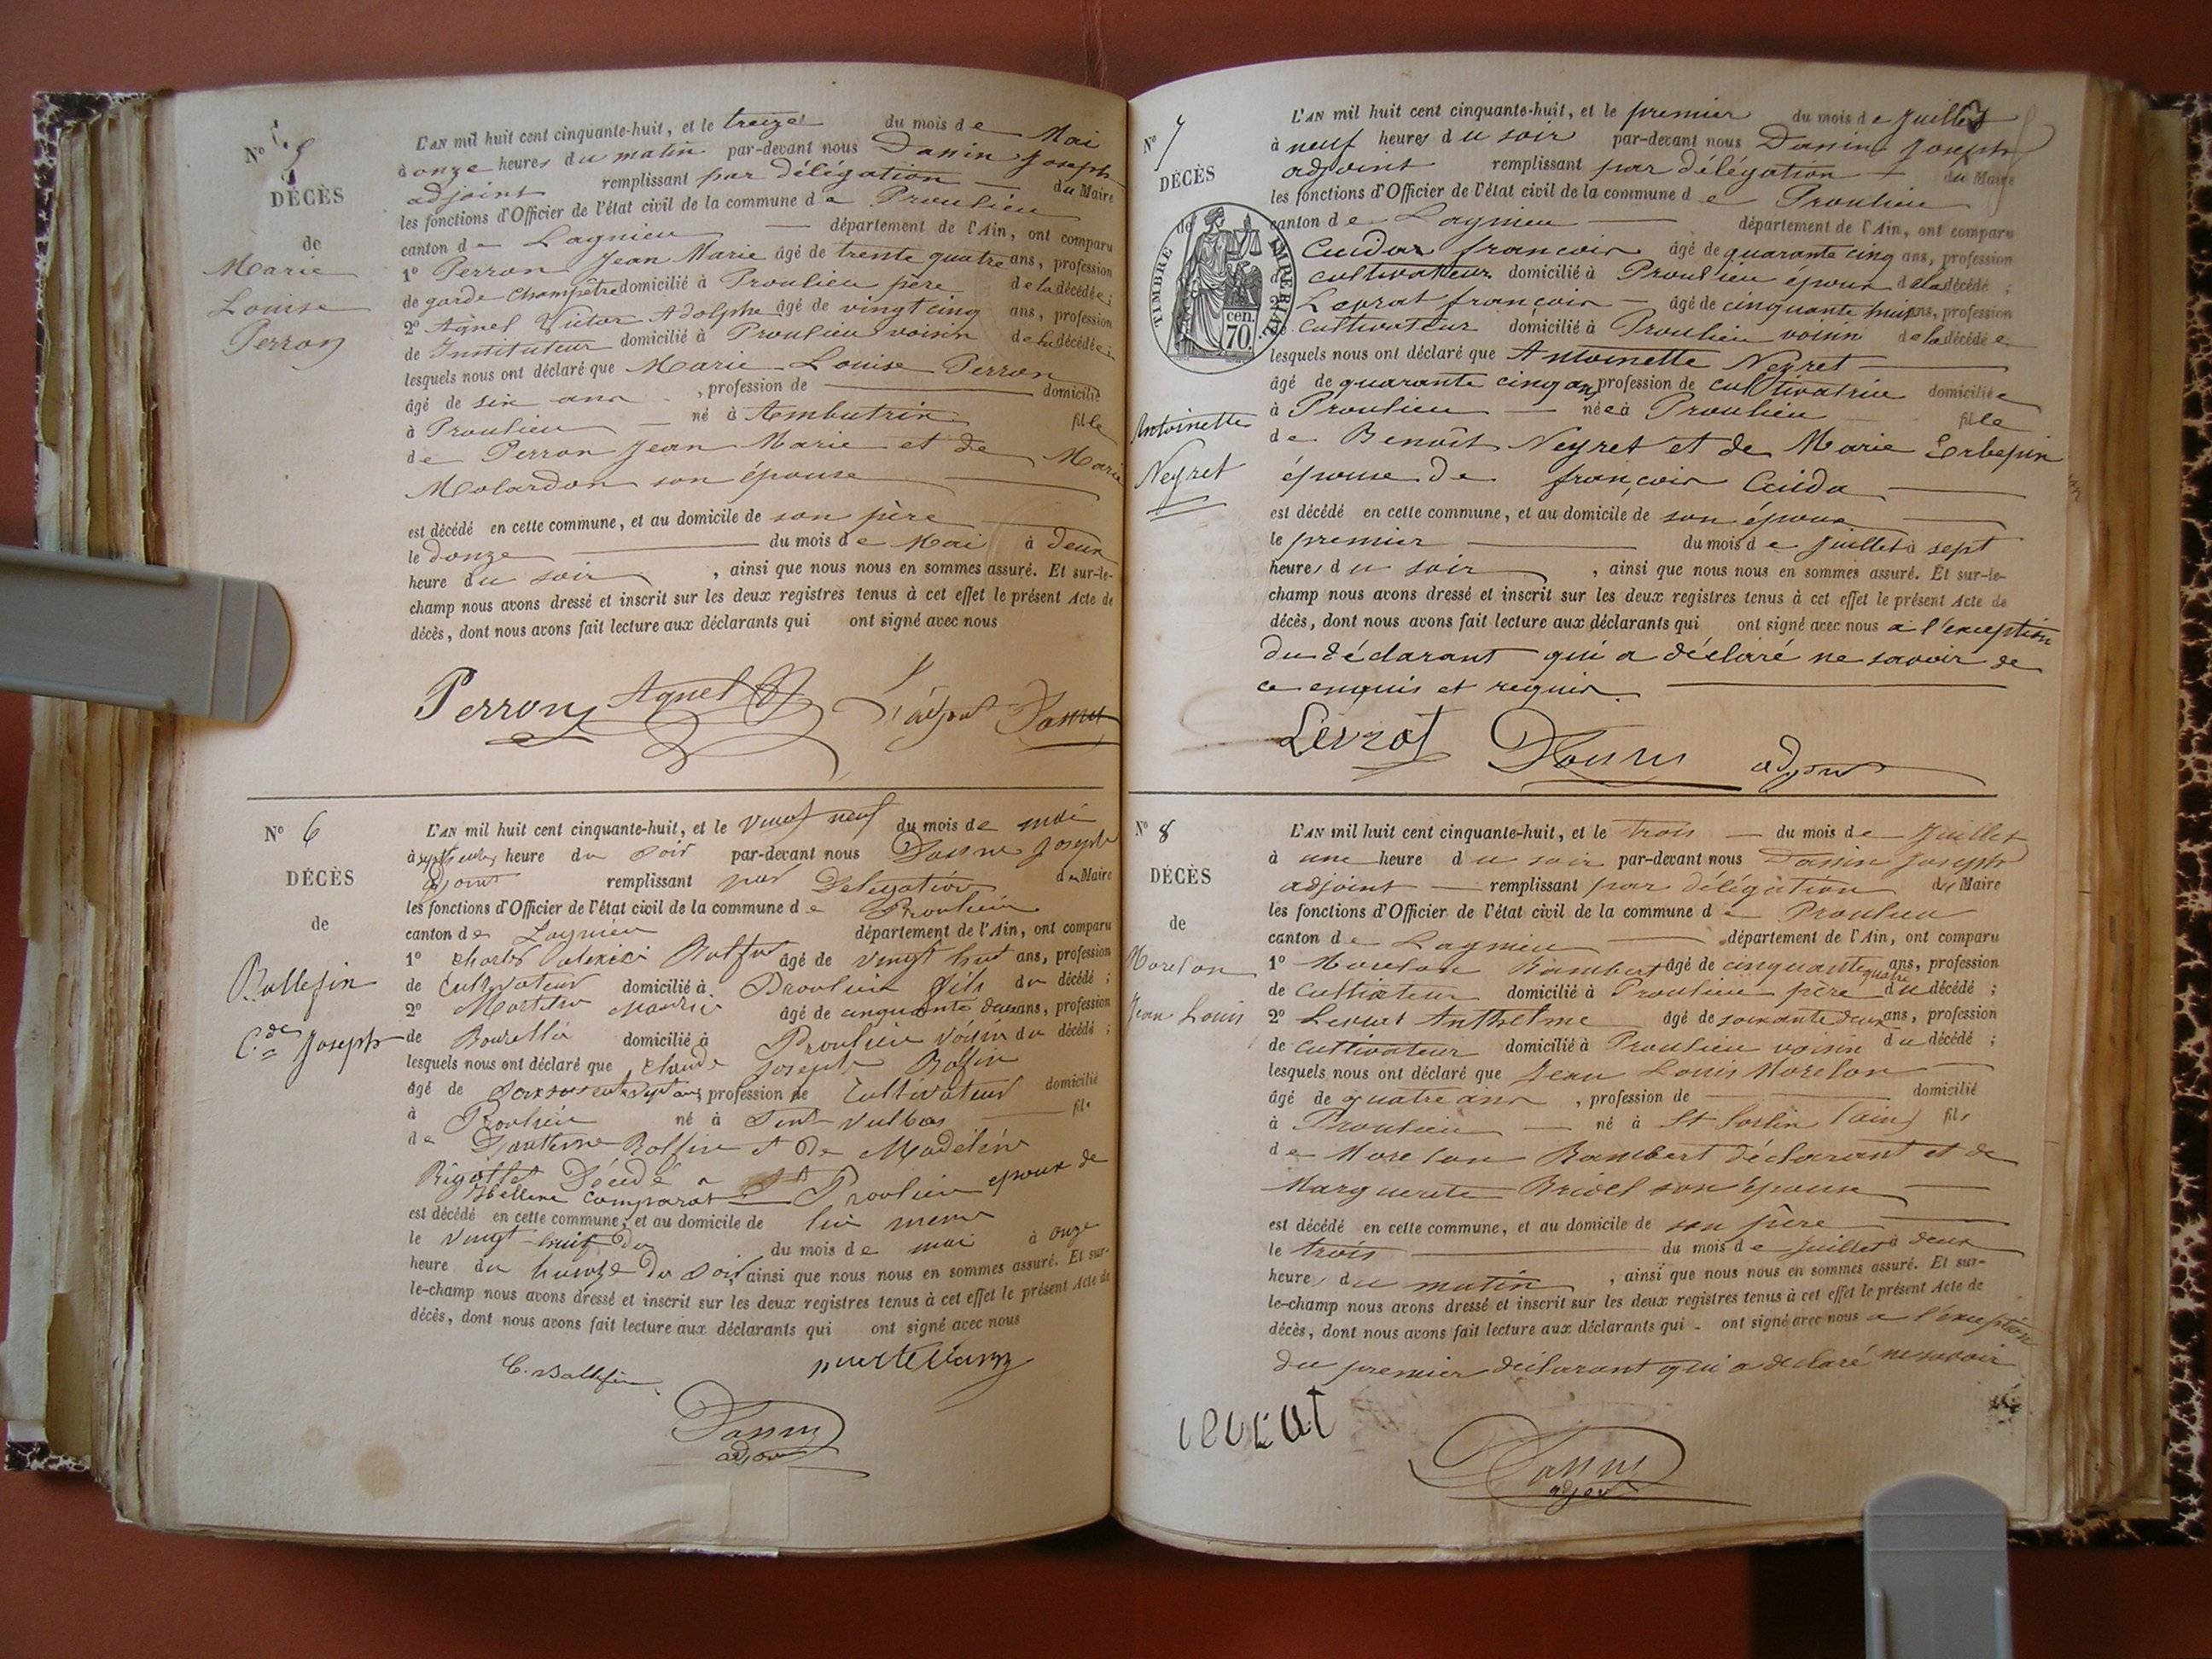 N° 5
DÉCÈS
de
Marie
Louise
Perron
L'AN mil huit cent cinquante-huit, et le treize du mois de Mai
à onze heures du matin par-devant nous Dannin Joseph
adjoint remplissant par délégation du Maire
les fonctions d'Officier de l'état civil de la commune de Proulieu
canton de Lagnieu département de l'Ain, ont comparu
1° Perron Jean Marie âgé de trente quatre ans, profession
de garde Champêtre domicilié à Proulieu père de la décédée;
2° Agnel Victor Adolphe âgé de vingt cinq ans, profession
de Instituteur domicilié à Proulieu voisin de la décédée;
lesquels nous ont déclaré que Marie Louise Perron
âgé de six ans, profession de domicilié
à Proulieu né à Ambutrix fille
de Perron Jean Marie et de Marie
Molardon son épouse
est décédé en cette commune, et au domicile de son père
le donze du mois de Mai à deux
heure du soir, ainsi que nous nous en sommes assuré. Et sur-le-
champ nous avons dressé et inscrit sur les deux registres tenus à cet effet le présent Acte de
décès, dont nous avons fait lecture aux déclarants qui ont signé avec nous
Perron Agnel L'adjoint
N° 6
DÉCÈS
de
Ballefin
C.de Joseph
L'AN mil huit cent cinquante-huit, et le vingt neuf du mois de mai
à heure du soir par-devant nous Joseph
adjoint remplissant par Delegation du Maire
les fonctions d'Officier de l'état civil de la commune de Proulieu
canton de Lagnieu département de l'Ain, ont comparu
1° Charles âgé de vingt huit ans, profession
de Cultivateur domicilié à Proulieu fils du décédé;
2° âgé de cinquante deux ans, profession
de domicilié à Proulieu voisin du décédé;
lesquels nous ont déclaré que Claude Joseph
âgé de profession de Cultivateur domicilié
à Proulieu né à Saint Vulbas fils
de et de Madeleine
Décédé à Proulieu epoux de
est décédé en cette commune, et au domicile de lui meme
le vingt huit du du mois de mai à onze
heure du du soir, ainsi que nous nous en sommes assuré. Et sur-
le-champ nous avons dressé et inscrit sur les deux registres tenus à cet effet le présent Acte de
décès, dont nous avons fait lecture aux déclarants qui ont signé avec nous
C. Ballefin
adjoint
N° 7
DÉCÈS
de
TIMBRE IMPERIAL
70 cen.
Antoinette
Neyret
L'AN mil huit cent cinquante-huit, et le premier du mois de Juillet
à neuf heures du soir par-devant nous Dannin Joseph
adjoint remplissant par délégation du Maire
les fonctions d'Officier de l'état civil de la commune de Proulieu
canton de Lagnieu département de l'Ain, ont comparu
françois âgé de quarante cinq ans, profession
de cultivateur domicilié à Proulieu époux de la décédé;
Levrat françois âgé de cinquante huit ans, profession
cultivateur domicilié à Proulieu voisin de la décédée
lesquels nous ont déclaré que Antoinette Neyret
âgé de quarante cinq ans profession de cultivatrice domiciliée
à Proulieu née à Proulieu fille
de Benoît Neyret et de Marie Erbepin
épouse de françois Cuida
est décédé en cette commune, et au domicile de son époux
le premier du mois de Juillet à sept
heures du soir, ainsi que nous nous en sommes assuré. Et sur-le-
champ nous avons dressé et inscrit sur les deux registres tenus à cet effet le présent Acte de
décès, dont nous avons fait lecture aux déclarants qui ont signé avec nous a l'exception
du déclarant qui a déclaré ne savoir de
ce enquis et requis
Levrat adjoint
N° 8
DÉCÈS
de
Morelon
Jean Louis
L'AN mil huit cent cinquante-huit, et le trois du mois de Juillet
à une heure du soir par-devant nous Dannin Joseph
adjoint remplissant par délégation du Maire
les fonctions d'Officier de l'état civil de la commune de Proulieu
canton de Lagnieu département de l'Ain, ont comparu
1° Morelon Rambert âgé de cinquante quatre ans, profession
de Cultivateur domicilié à Proulieu père du décédé;
2° Levrat Anthelme âgé de soixante deux ans, profession
de cultivateur domicilié à Proulieu voisin du décédé;
lesquels nous ont déclaré que Jean Louis Morelon
âgé de quatre ans, profession de domicilié
à Proulieu né à St Sorlin (ain) fils
de Morelon Rambert déclarant et de
Marguerite son épouse
est décédé en cette commune, et au domicile de son père
le trois du mois de Juillet à deux
heures du matin, ainsi que nous nous en sommes assuré. Et sur-
le-champ nous avons dressé et inscrit sur les deux registres tenus à cet effet le présent Acte de
décès, dont nous avons fait lecture aux déclarants qui ont signé avec nous a l'exception
du premier déclarant qui a declaré ne savoir
levrat
adjoint